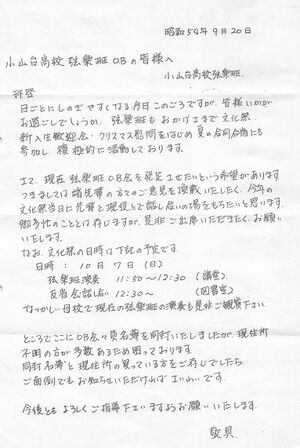 昭和54年9月20日
小山台高校弦楽班OBの皆様へ
小山台高校弦楽班
拝啓
日ごとにしのぎやすくなる今日このごろですが、皆様いかが
お過ごしでしょうか。弦楽班もおかげさまで文化祭、
新入生歓迎会・クリスマス慰問をはじめ夏の合同合宿にも
参加し、積極的に活動しております。
さて、現在弦楽班OB会を発足させたいという希望があります。
つきましては諸先輩の方々のご意見を頂戴いたしたく、今年の
文化祭当日に先輩と現役とで話し合いの場をもちたいと思います。
御多忙のこととは存じますが、是非ご出席いただきたく、お願い
いたします。
なお、文化祭の日時は下記の予定です。
日時: 10月7日(日)
弦楽班演奏 11:50〜12:30 (講堂)
反省会話し合い 12:30〜 (図書室)
なつかしい母校で現在の弦楽班の演奏も是非ご観賞下さい。
ところでここにOB会々員名簿を同封いたしましたが、現住所
不明の方が多数あるため困っております。
同封名簿と現住所の異っている方をご存じでしたら、
ご面倒でもお知らせいただければさいわいです。
今後ともよろしくご指導下さいますようお願いいたします。
敬具